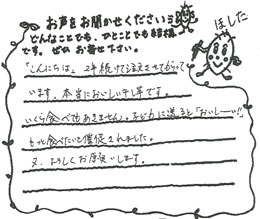 お声をお聞かせください
どんなことでも、ひとことでも結構
です。ぜひ お寄せ下さい。
ほした
「こんにちは」2年続けて注文させてもらって
います。本当においしい干し芋です。
いくら食べてもあきません。子どもに送ると「おいしーい」
もっと食べたいと催促されました。
又、よろしくお願いします。